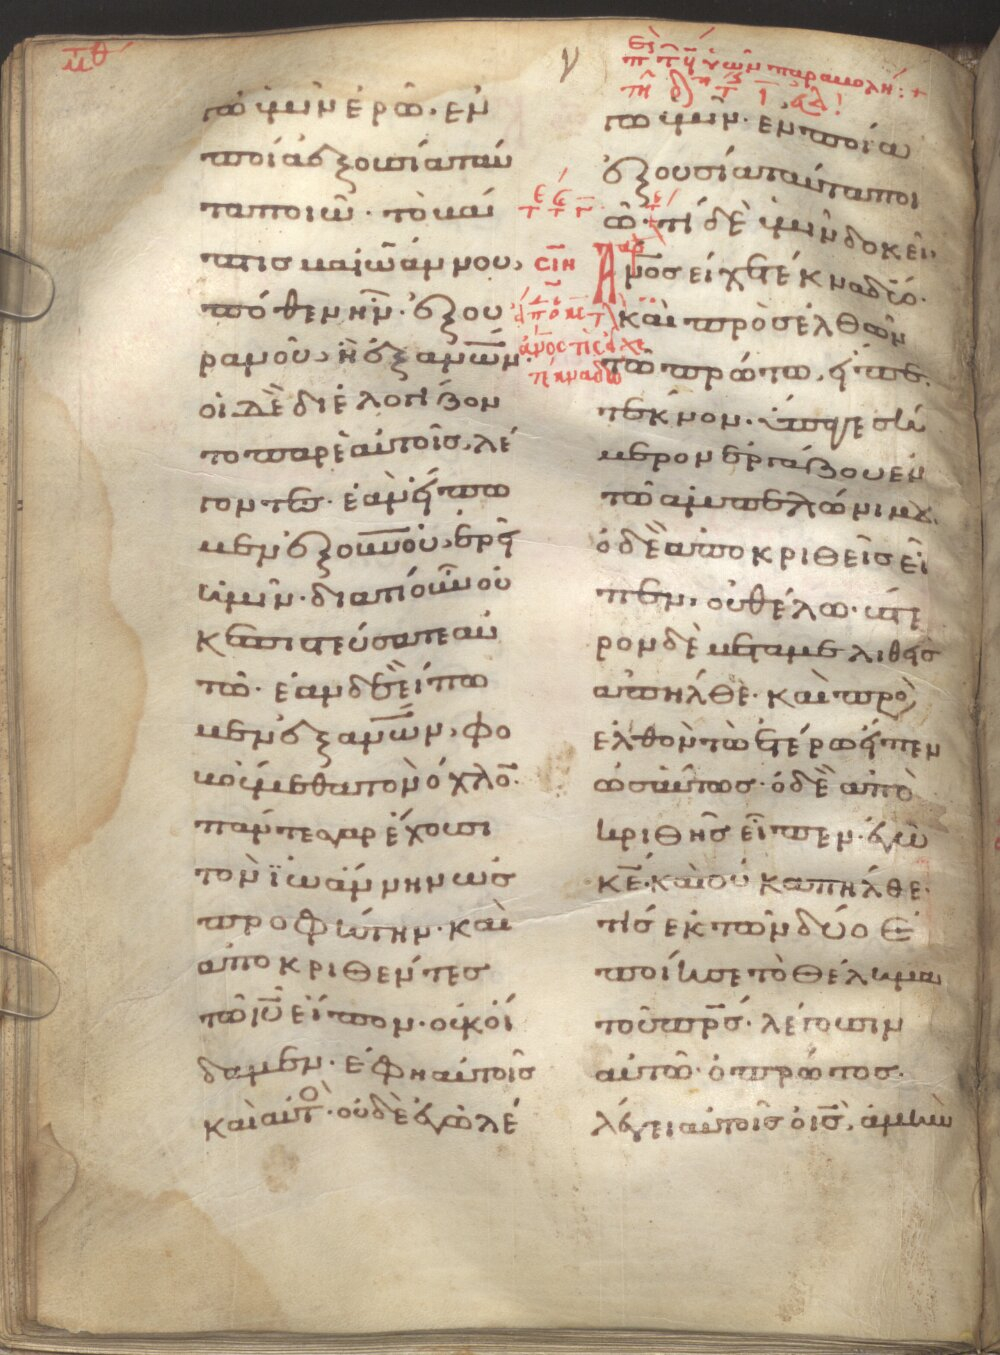 μθ
τῶ ὑμῖν ἐρῶ· ἐν
ποία ἐξουσία ταῦ
τα ποιῶ· τὸ βά
πτισμα ἰωάννου,
πόθεν ἦν· ἐξ οὐ
ρανοῦ, ἢ ἐξ ἀνων·
οἱ δὲ διελογίζον
το παρ ἑαυτοῖς, λέ
γοντες· ἐὰν εἴπω
μεν ἐξ οὐνοῦ, ἐρεῖ
ἡμῖν· διατί οὖν οὐ
κ ἐπιστεύσατε αὐ
τῶ· ἐὰν δὲ εἴπω
μεν ἐξ ἀνων, φο
βούμεθα τὸν ὄχλο̄·
πάντες γὰρ ἔχουσι
τὸν ἰωάννην ὡς
προφήτην· καὶ
ἀποκριθέντες
τῶ ιυ εἶπον· οὐκ οἴ
δαμεν· ἔφη αὐτοῖς
καὶ αὐτο· οὐδὲ ἐγὼ λέ
τω ὑμῖν· ἐν ποία
ἐξουσία ταῦτα ποι
ῶ· τί δὲ ὑμῖν δοκεῖ,
Ἄνος εἶχε τέκνα δύο·
καὶ προσελθὼν
τῶ πρώτω, εἶπε·
τέκνον· ὕπαγε σή
μερον ἐργάζου ἐν
τῶ ἀμπελώνι μου.
ὁ δὲ ἀποκριθεὶς εἶ
πεν, οὐ θέλω· ὕστε
ρον δὲ μεταμεληθεὶς
ἀπῆλθε· καὶ προσ
ελθὸν τῶ ἑτέρω εἶπεν
ὡσαύτως· ὁ δὲ ἀπο
κριθῆς εἶπεν· ἐγὼ
κε· καὶ οὐκ ἀπῆλθε·
τίς ἐκ τῶν δύο ἐ
ποίησε τὸ θέλημα
τοῦ πρς· λέγουσιν
αὐτῶ· ὁ πρῶτος·
λέγει αὐτοῖς ὁ ις, ἀμὴν